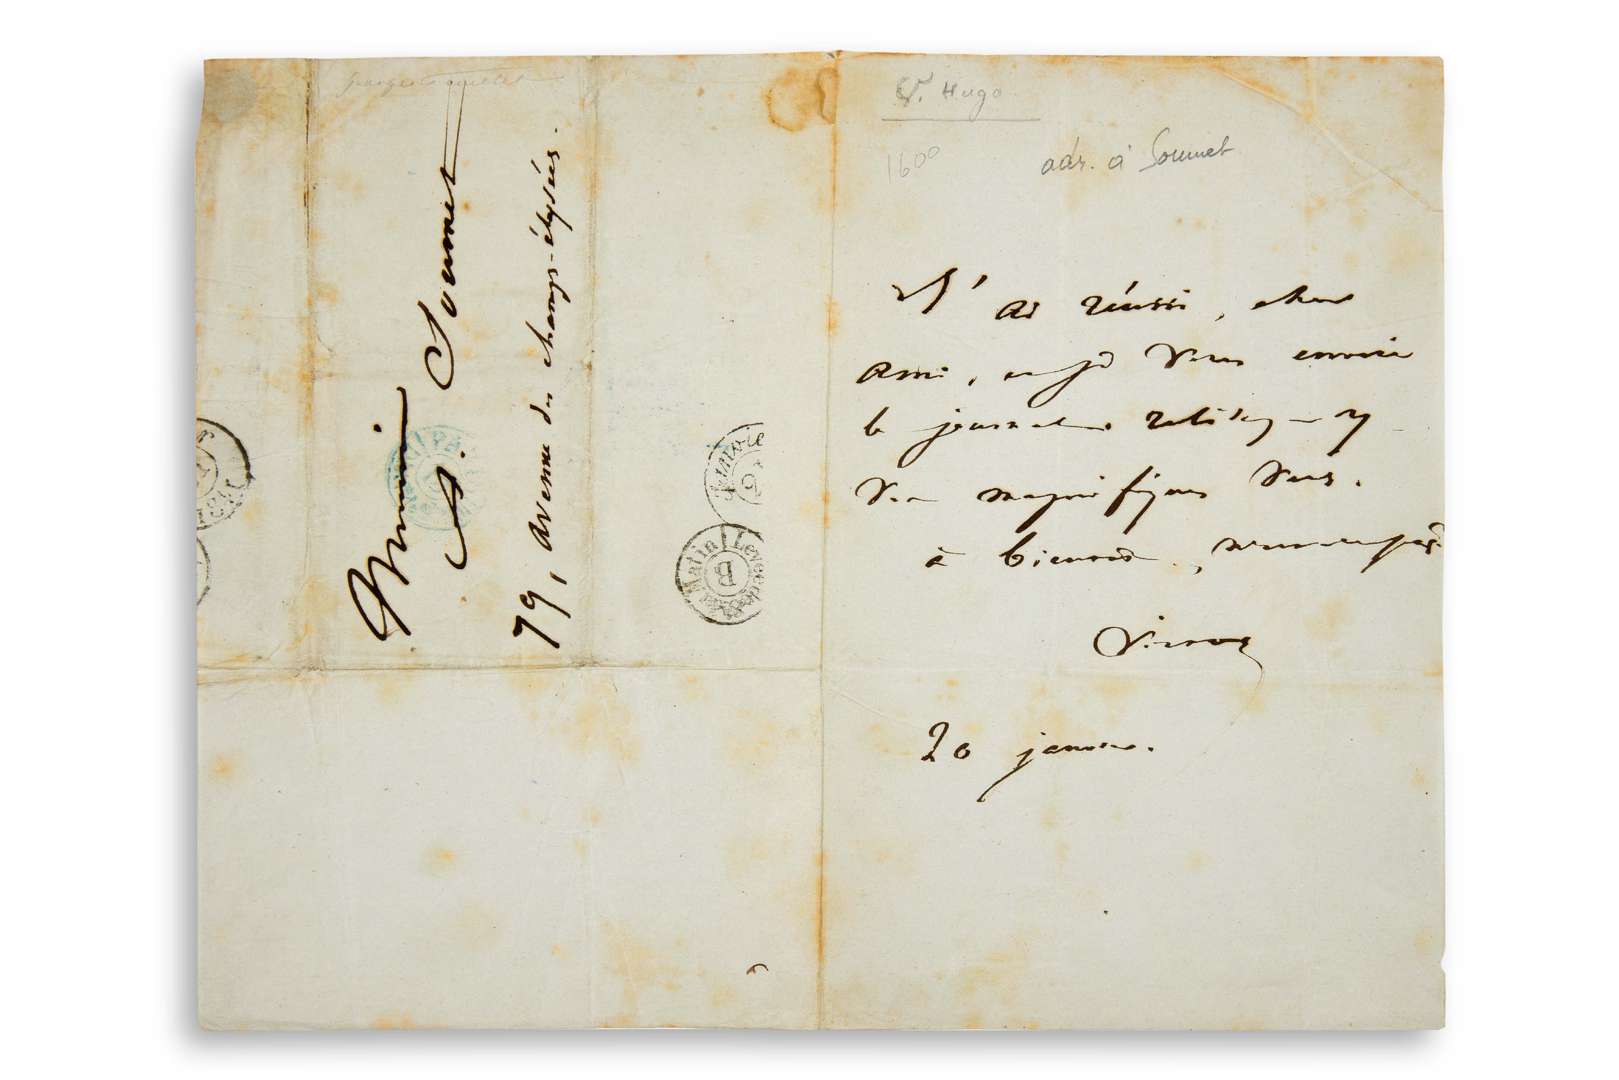 Monsieur
A. Soumet
79, avenue des champs-élysées.
Matin Levée de
B
V. Hugo
1600
adr. à Soumet
J'ai réussi, cher
ami, et je vous envoie
le journal
vos magnifiques vers.
à bientôt,
Victor
20 janvier.